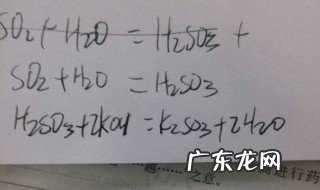 SO₂+H₂O = H₂SO₃ +
SO₂+H₂O = H₂SO₃
H₂SO₃+2KOH = K₂SO₃+2H₂O
广东龙网
之意
进行药